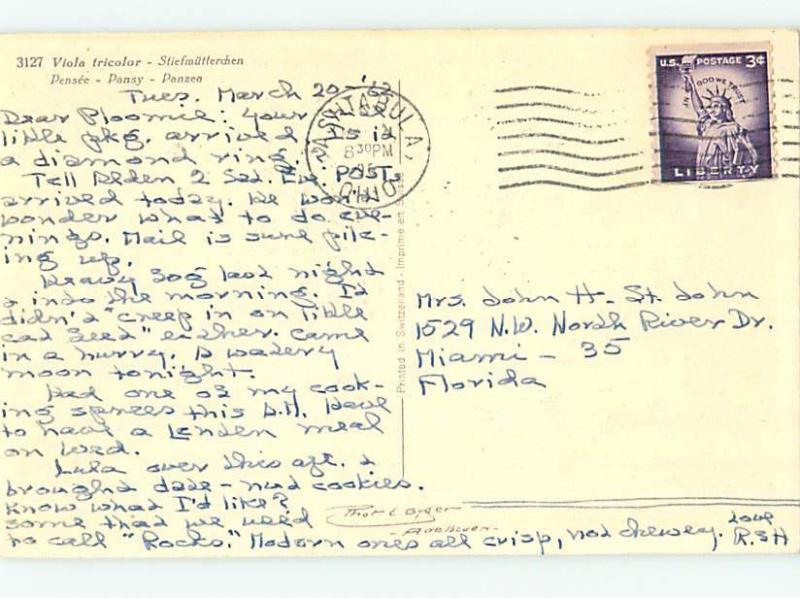 3127 Viola tricolor - Stiefmütterchen
Pensée - Pansy - Panzea
U.S. POSTAGE 3¢
IN GOD WE TRUST
LIBERTY
ASHTABULA, OHIO
8 30 PM
Tues. March 20 - '62
Dear Ploomie: Your nice
little pkg. arrived. Is it
a diamond ring.
Tell Alden 2 Sat. Eve. POSTs
arrived today. We won't
wonder what to do eve-
nings. Mail is sure pil-
ing up.
Heavy fog last night
& into the morning. It
didn't "creep in on little
cat feet" either. Came
in a hurry. A watery
moon tonight.
Had one of my cook-
ing sprees this A.M. Have
to have a Lenten meal
on Wed.
Lula over this aft. &
brought date-nut cookies.
Know what I'd like?
Some that we used
to call "Rocks." Modern ones all crisp, not chewey.
Love
R.S.H
Printed in Switzerland - Imprimé en Suisse
Mrs. John H. St. John
1529 N.W. North River Dr.
Miami - 35
Florida